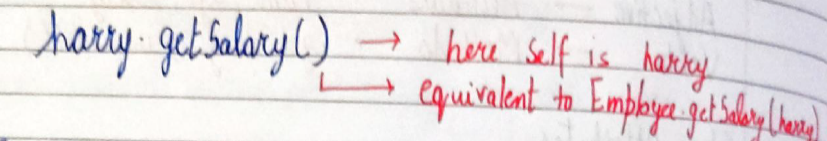 harry.getSalary() → here self is harry
↳ equivalent to Employee.getSalary(harry)